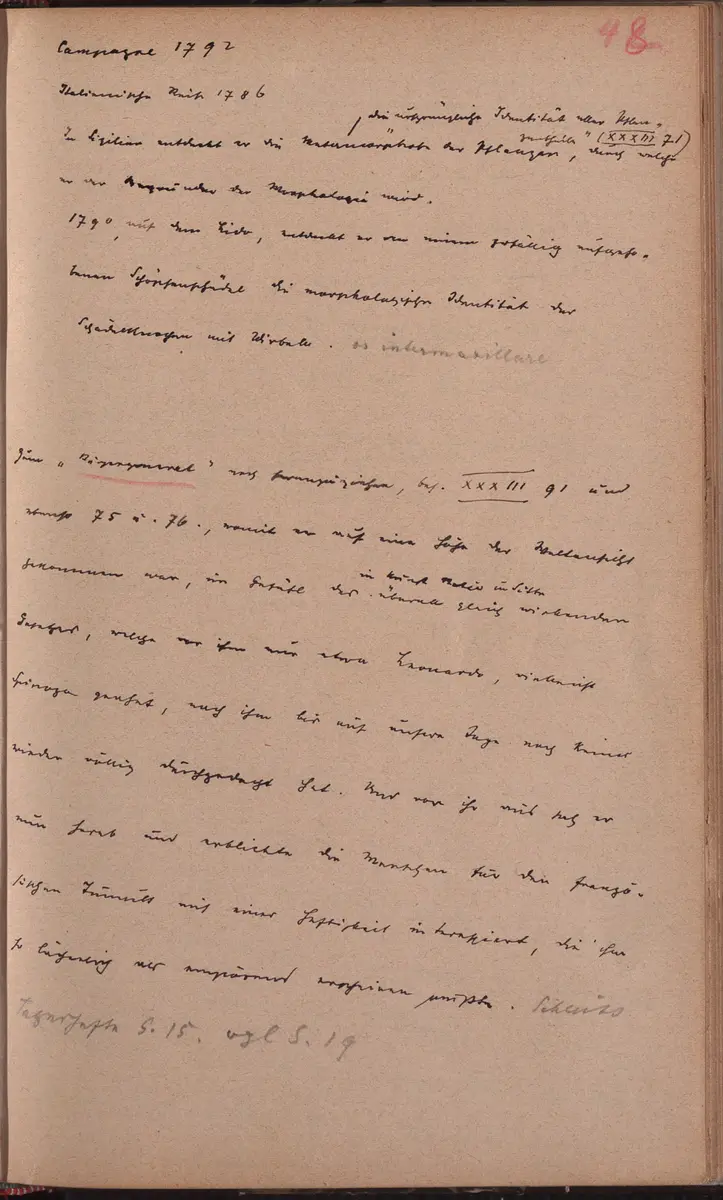 48
Campagne 1792
Italienische Reise 1786
„die ursprüngliche Identität aller Pflan-
zentheile" (XXXIII 71)
In Sizilien entdeckt er die Metamorphose der Pflanzen, durch welche
er der Begründer der Morphologie wird.
1790, auf dem Lido, entdeckt er an einem zufällig aufgeho-
benen Schöpsenschädel die morphologische Identität der
Schädelknochen mit Wirbeln. os intermaxillare
Zum „Bürgergeneral" noch heranzuziehen, bes. XXXIII 91 und
ebenso 75 u. 76., womit er auf eine Höhe der Weltansicht
in Kunst Natur u Sitte
gekommen war, im Gefühl des überall gleich wirkenden
Gesetzes, welche vor ihm nur etwa Leonardo, vielleicht
Spinoza geahnt, nach ihm bis auf unsere Tage noch keiner
wieder völlig durchgedacht hat. Und von ihr aus sah er
nun herab und erblickte die Menschen für den franzö-
sischen Tumult mit einer Heftigkeit interessiert, die ihm
so lächerlich als empörend erscheinen mußte.
S. 15. vgl S. 19